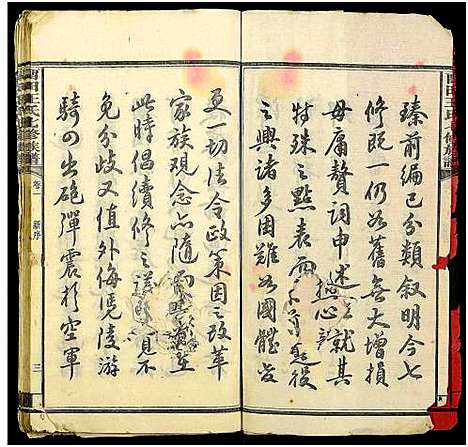 臻前編已分類叙明今七
修既一仍如舊無大增損
毋庸贅詞申述就其
特殊之點表而
之興諸多困難如國體變
更一切法令政策因之改革
家族觀念亦隨
此時倡續修之議
免分歧又值外侮憑陵游
騎四出砲彈震於空軍
卷一
新序
三